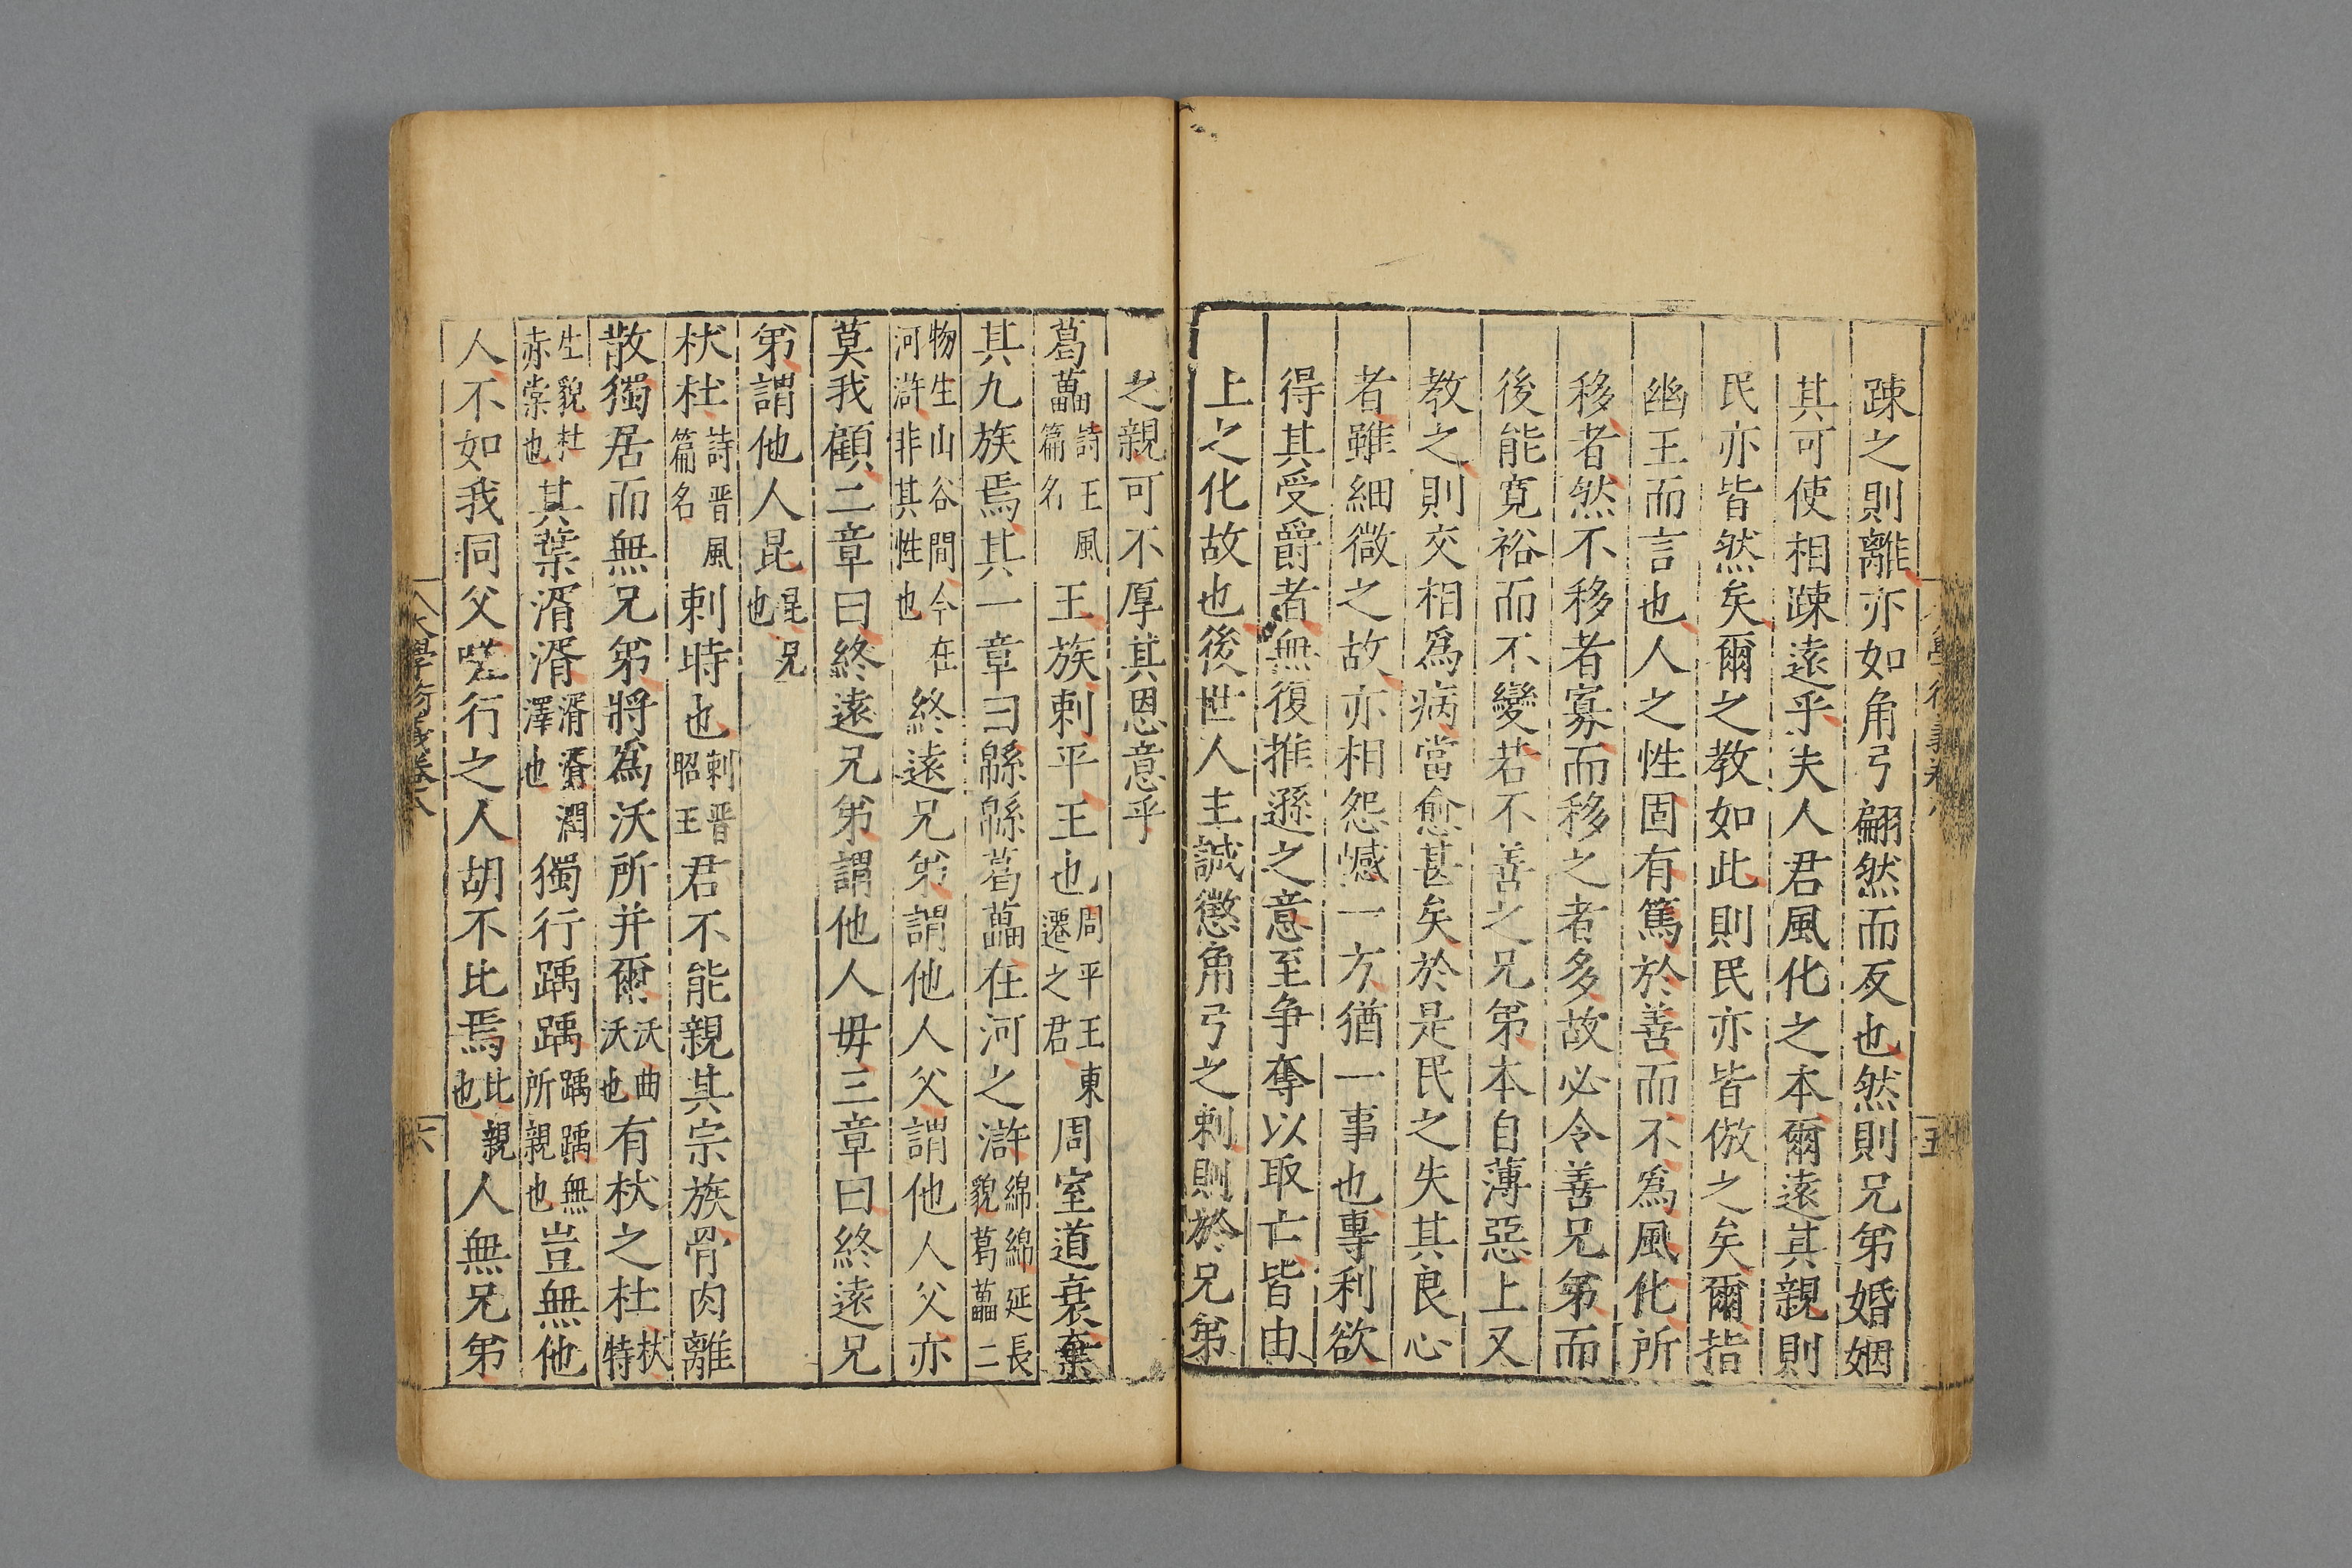 踈之則離亦如角弓翩然而反也然則兄弟婚姻
其可使相踈遠乎夫人君風化之本爾遠其親則
民亦皆然矣爾之教如此則民亦皆倣之矣爾指
幽王而言也人之性固有篤於善而不爲風化所
移者然不移者寡而移之者多故必令善兄弟而
後能寛裕而不變若不善之兄弟本自薄惡上又
教之則交相爲病當愈甚矣於是民之失其良心
者雖細微之故亦相怨憾一方猶一事也專利欲
得其受爵者無復推遜之意至争奪以取亡皆由
上之化故也後世人主誠懲角弓之刺則於兄弟
之親可不厚其恩意乎
葛藟詩王風篇名王族刺平王也周平王東遷之君周室道衰棄
其九族焉其一章曰緜緜葛藟在河之滸綿綿延長貌葛藟二
物生山谷間今在河滸非其性也終遠兄弟謂他人父謂他人父亦
莫我顧二章曰終遠兄弟謂他人母三章曰終遠兄
弟謂他人昆昆兄也
杕杜詩晋風篇名刺時也刺晋昭王君不能親其宗族骨肉離
散獨居而無兄弟將爲沃所并爾沃曲沃也有杕之杜杕特
生貌杜赤棠也其葉湑湑湑湑潤澤也獨行踽踽踽踽無所親也豈無他
人不如我同父嗟行之人胡不比焉比親也人無兄弟
大學衍義卷八
六
五